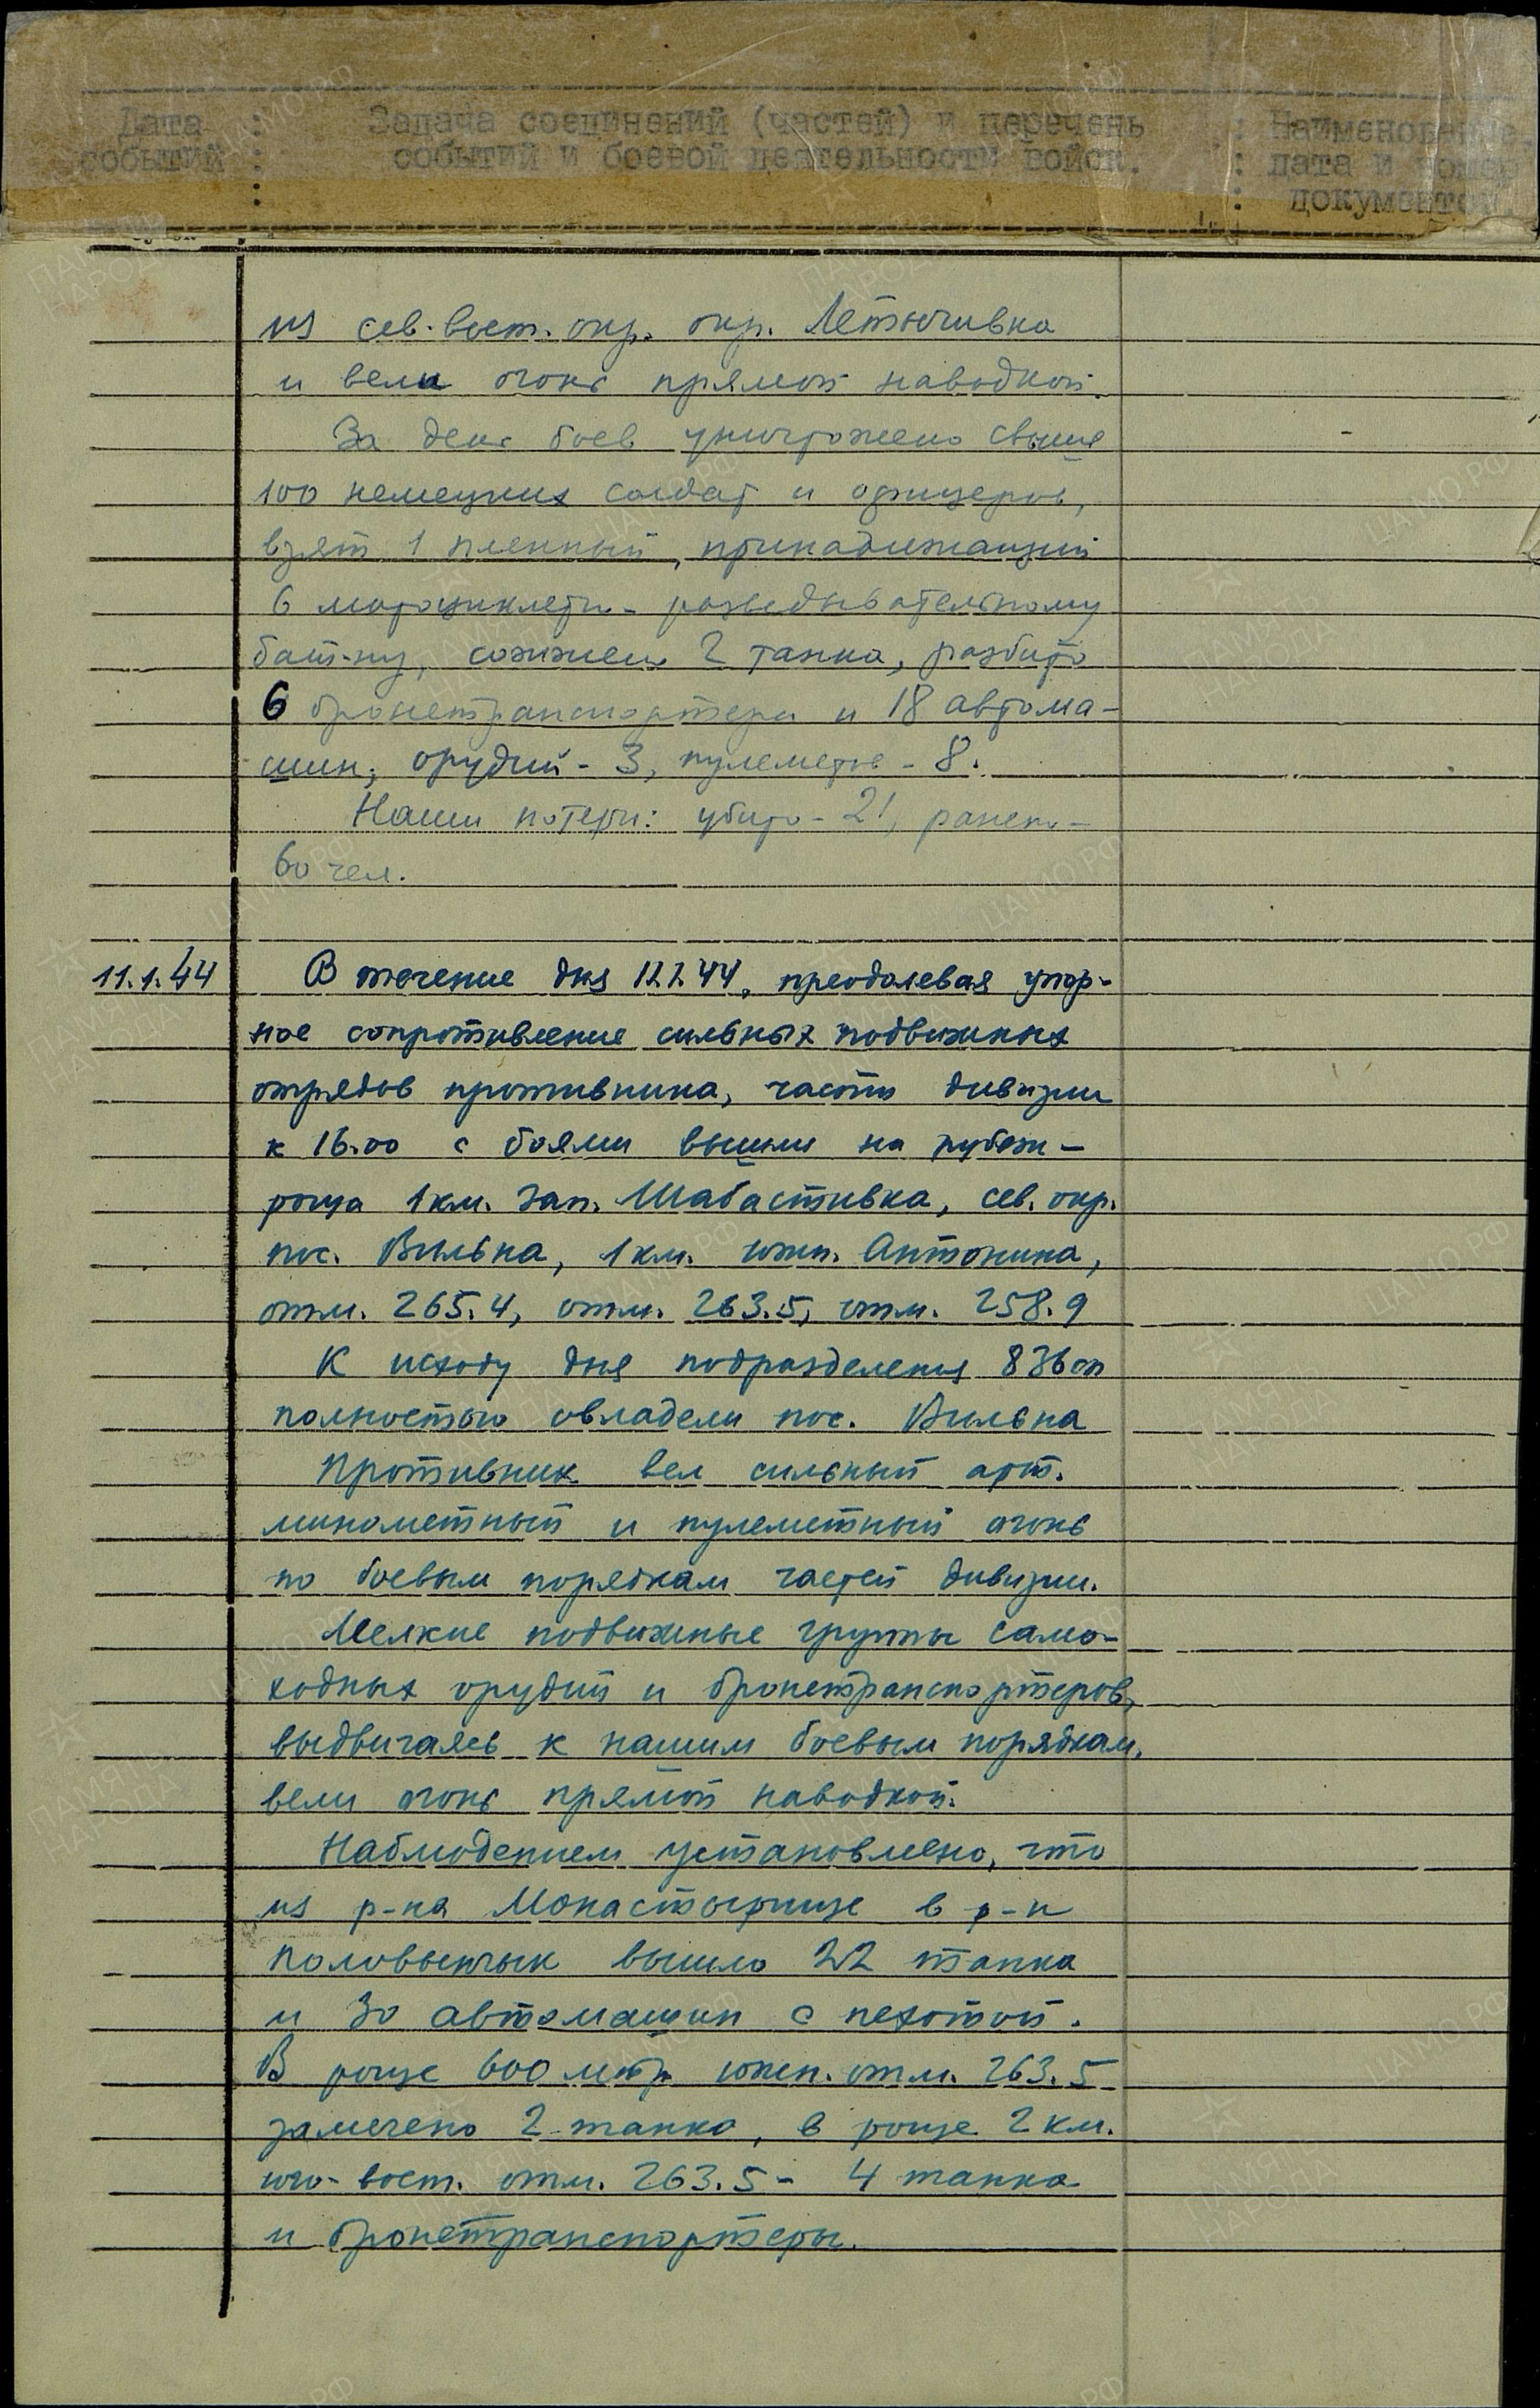 Дата : Задача соединений (частей) и перечень : Наименование,
событий : событий и боевой деятельности войск. : дата и номер
: : документов
из сев.вост. окр. окр. Летычивка
и вели огонь прямой наводкой.
За день боев уничтожено свыше
100 немецких солдат и офицеров,
взят 1 пленный, принадлежащий
6 мотоциклетн- разведывательному
бат-ну, сожжено 2 танка, разбито
6 бронетранспортера и 18 автома-
шин, орудий - 3, пулеметов - 8.
Наши потери: убито - 21, ранено -
60 чел.
11.1.44 В течение дня 11.1.44, преодолевая упор-
ное сопротивление сильных подвижных
отрядов противника, части дивизии
к 16.00 с боями вышли на рубеж -
роща 1 км. зап. Шабастивка, сев. окр.
пос. Вильна, 1 км. южн. Антонина,
отм. 265.4, отм. 263.5, отм. 258.9
К исходу дня подразделения 836 сп
полностью овладели пос. Вильна
Противник вел сильный арт.
минометный и пулеметный огонь
по боевым порядкам частей дивизии.
Мелкие подвижные группы само-
ходных орудий и бронетранспортеров,
выдвигаясь к нашим боевым порядкам,
вели огонь прямой наводкой.
Наблюдением установлено, что
из р-на Монастырище в р-н
Половынчык вышло 22 танка
и 30 автомашин с пехотой.
В роще 600 метр южн. отм. 263.5
замечено 2 танка, в роще 2 км.
юго-вост. отм. 263.5 - 4 танка
и бронетранспортеры.